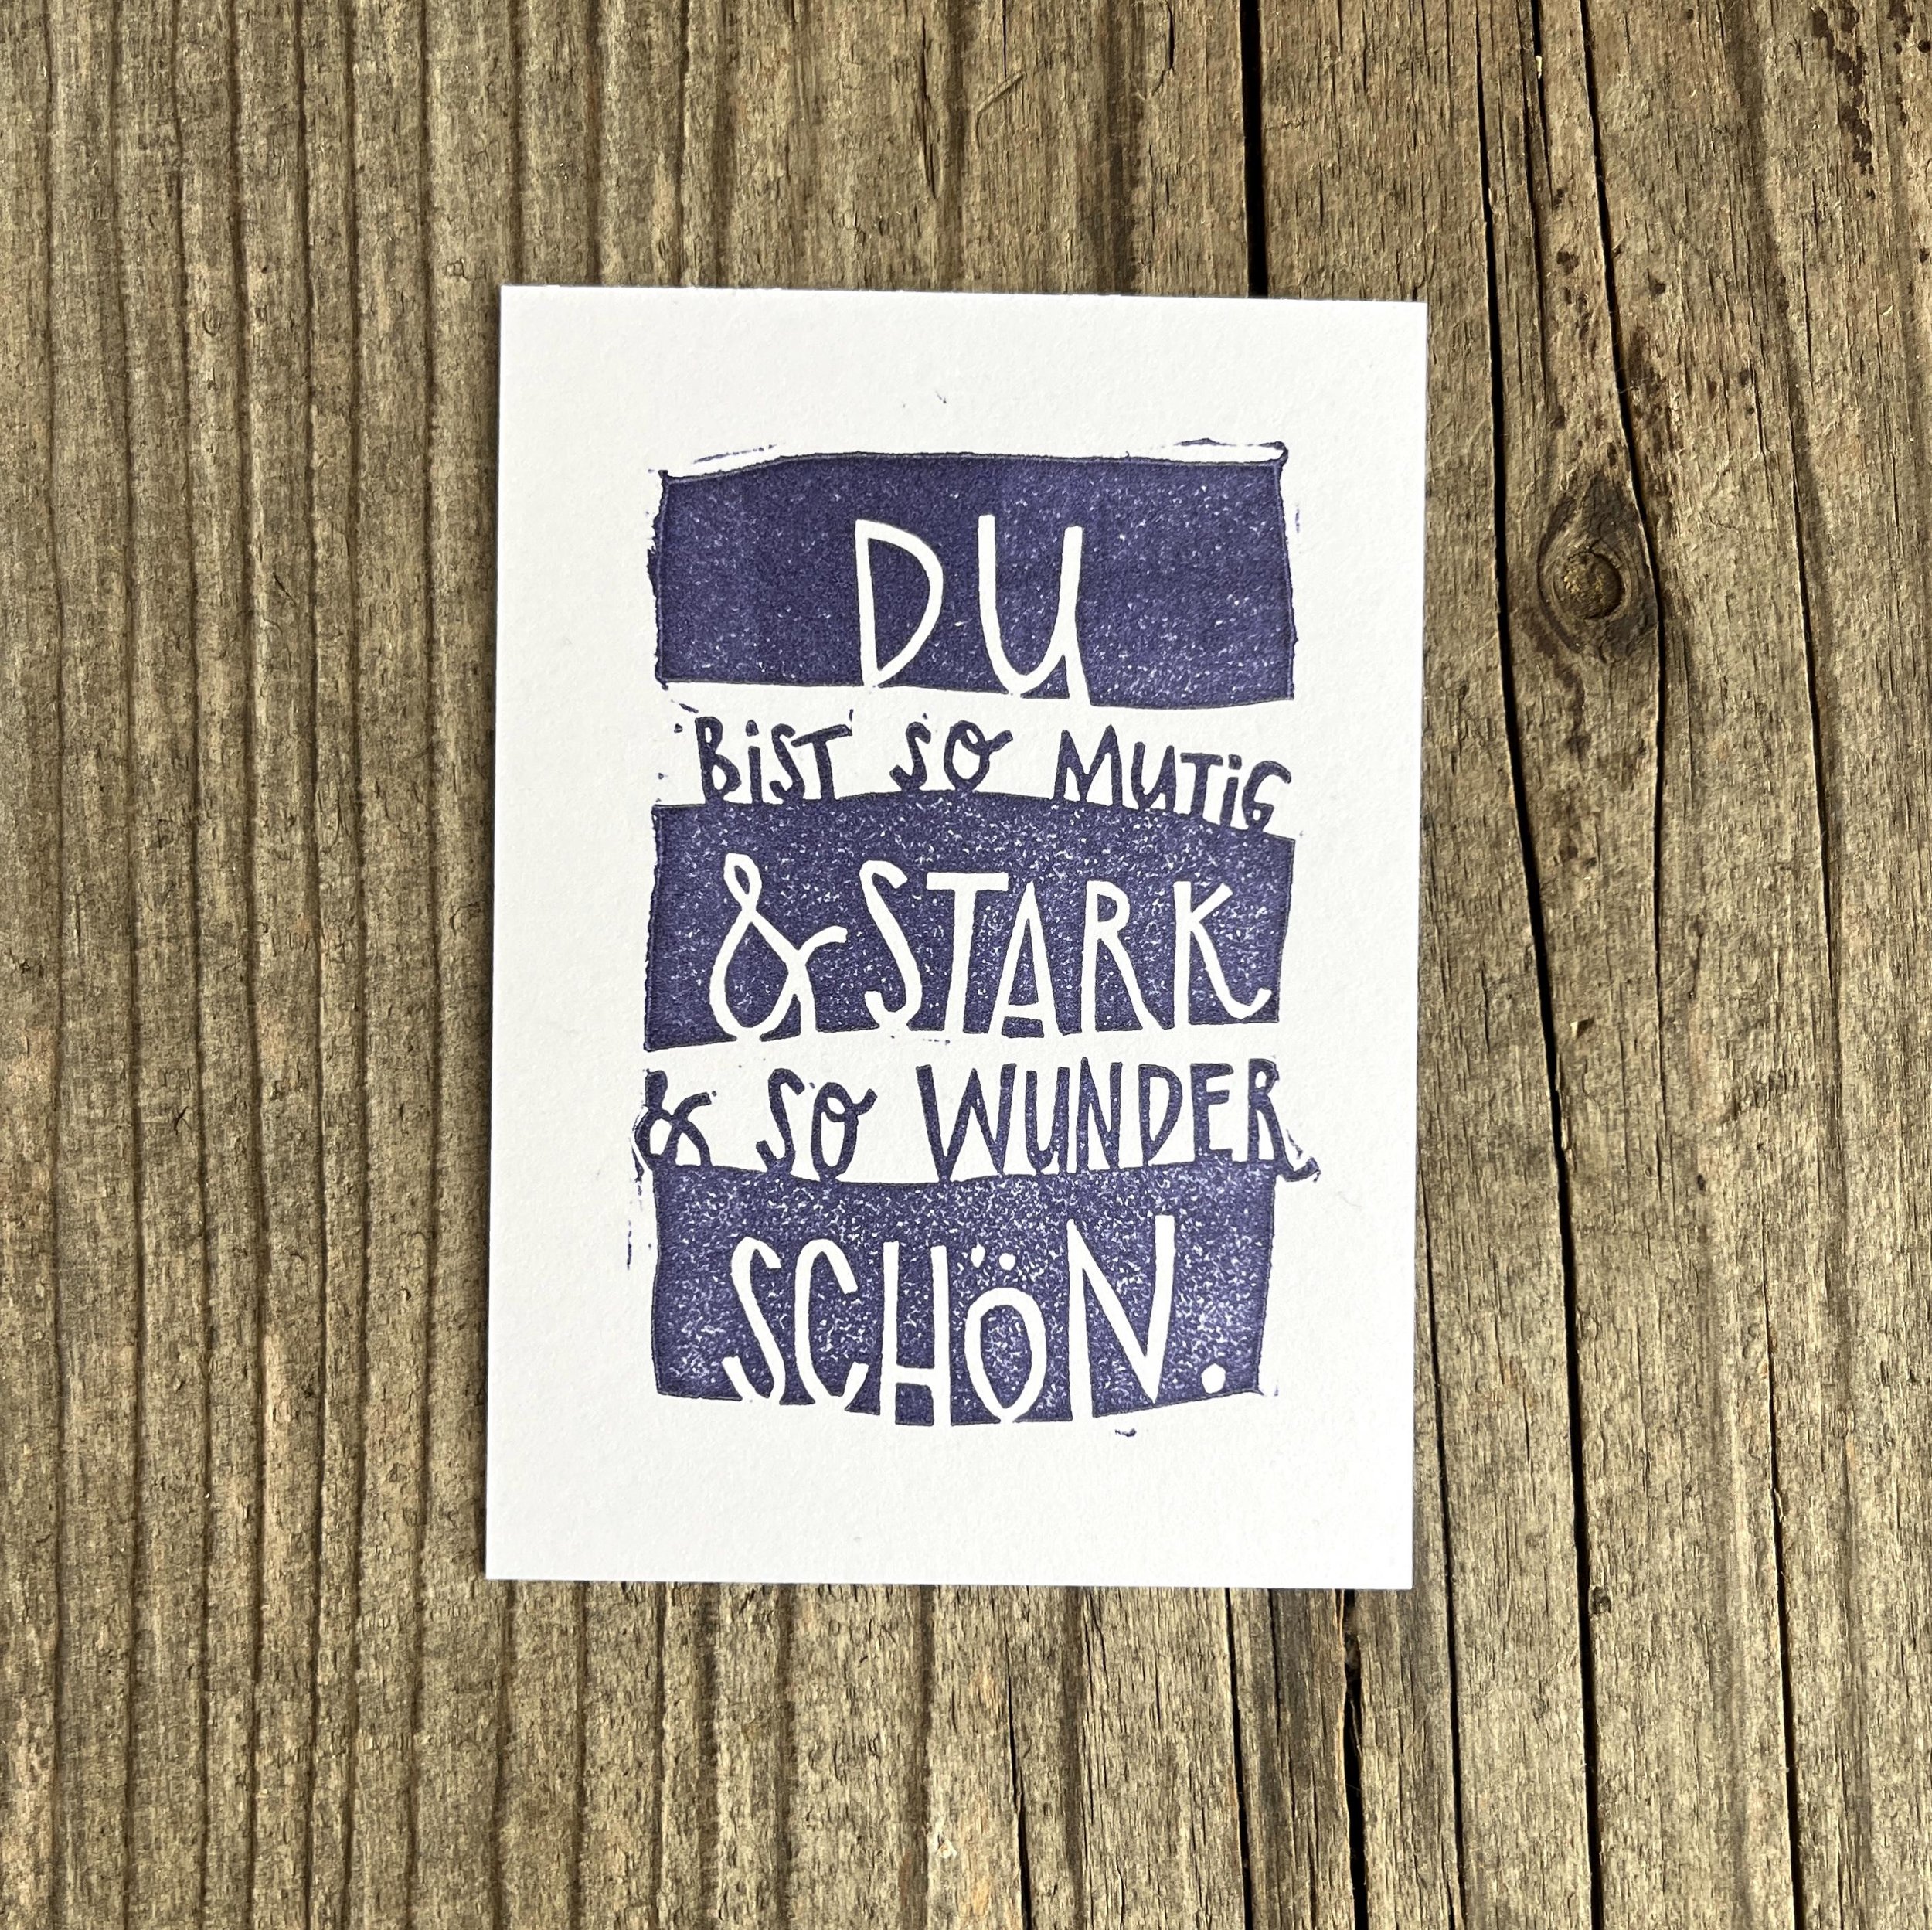 DU
BiST SO MUTiG
& STARK
& SO WUNDER
SCHÖN.